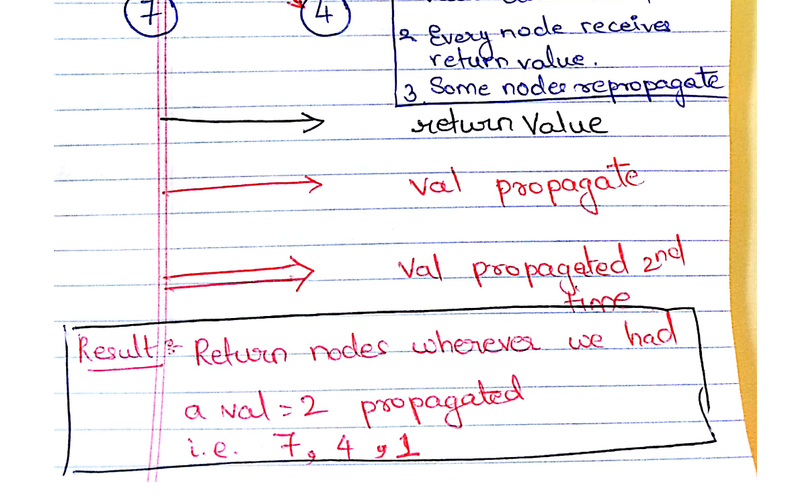 7 4
2. Every node receives
return value.
3. Some nodes repropagate
return Value
Val propagate
Val propagated 2nd
time
Result :- Return nodes wherever we had
a val = 2 propagated
i.e. 7, 4, 1